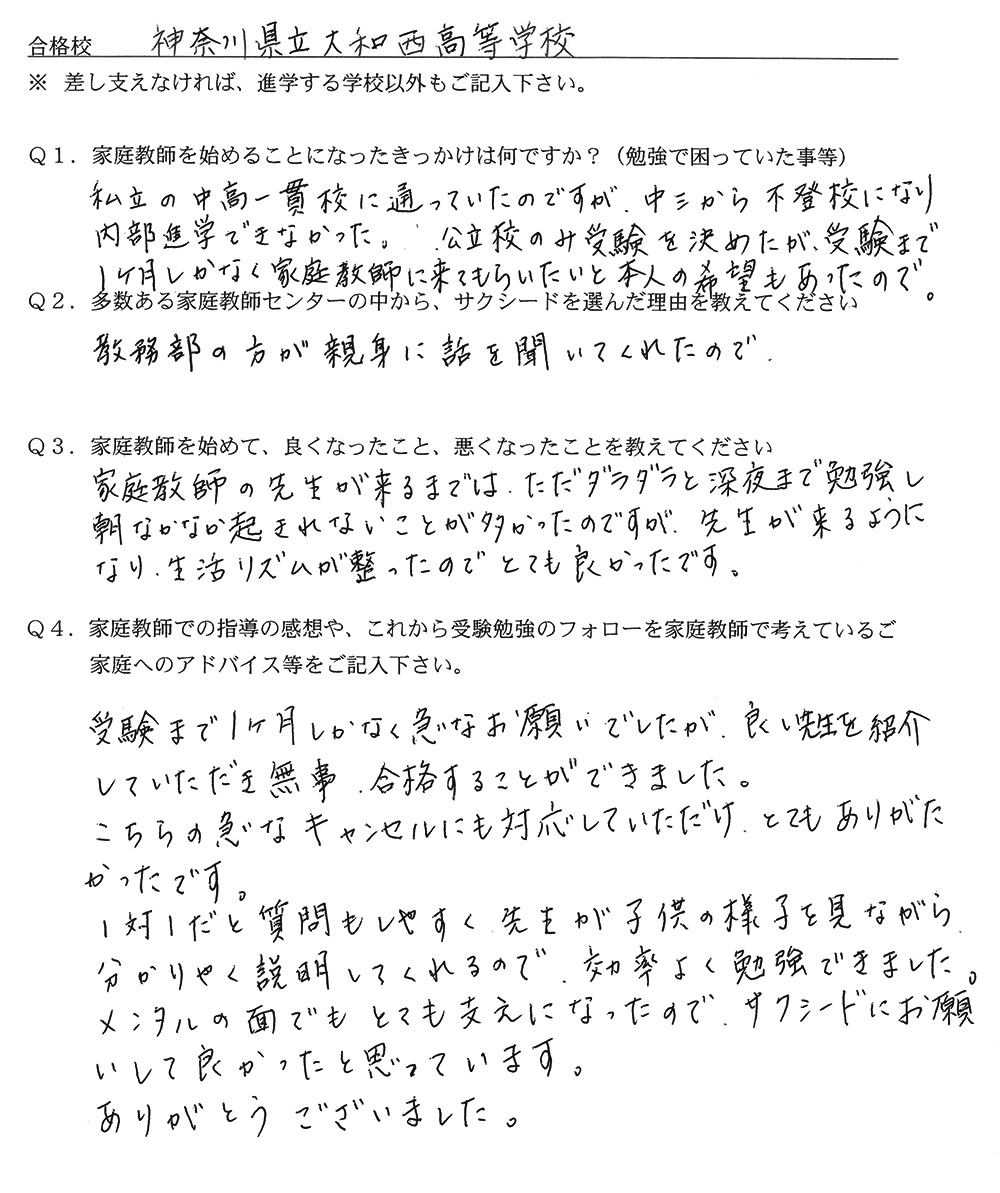 合格校　神奈川県立大和西高等学校
※ 差し支えなければ、進学する学校以外もご記入下さい。
Ｑ１．家庭教師を始めることになったきっかけは何ですか？（勉強で困っていた事等）
私立の中高一貫校に通っていたのですが、中三から不登校になり
内部進学できなかった。公立校のみ受験を決めたが、受験まで
1ヶ月しかなく家庭教師に来てもらいたいと本人の希望もあったので。
Ｑ２．多数ある家庭教師センターの中から、サクシードを選んだ理由を教えてください
教務部の方が親身に話を聞いてくれたので、
Ｑ３．家庭教師を始めて、良くなったこと、悪くなったことを教えてください
家庭教師の先生が来るまでは、ただダラダラと深夜まで勉強し
朝なかなか起きれないことが多かったのですが、先生が来るように
なり、生活リズムが整ったのでとても良かったです。
Ｑ４．家庭教師での指導の感想や、これから受験勉強のフォローを家庭教師で考えているご
家庭へのアドバイス等をご記入下さい。
受験まで1ヶ月しかなく急なお願いでしたが、良い先生を紹介
していただき無事、合格することができました。
こちらの急なキャンセルにも対応していただけ、とてもありがた
かったです。
1対1だと質問もしやすく、先生が子供の様子を見ながら、
分かりやく説明してくれるので、効率よく勉強できました。
メンタルの面でもとても支えになったので、サクシードにお願
いして良かったと思っています。
ありがとうございました。